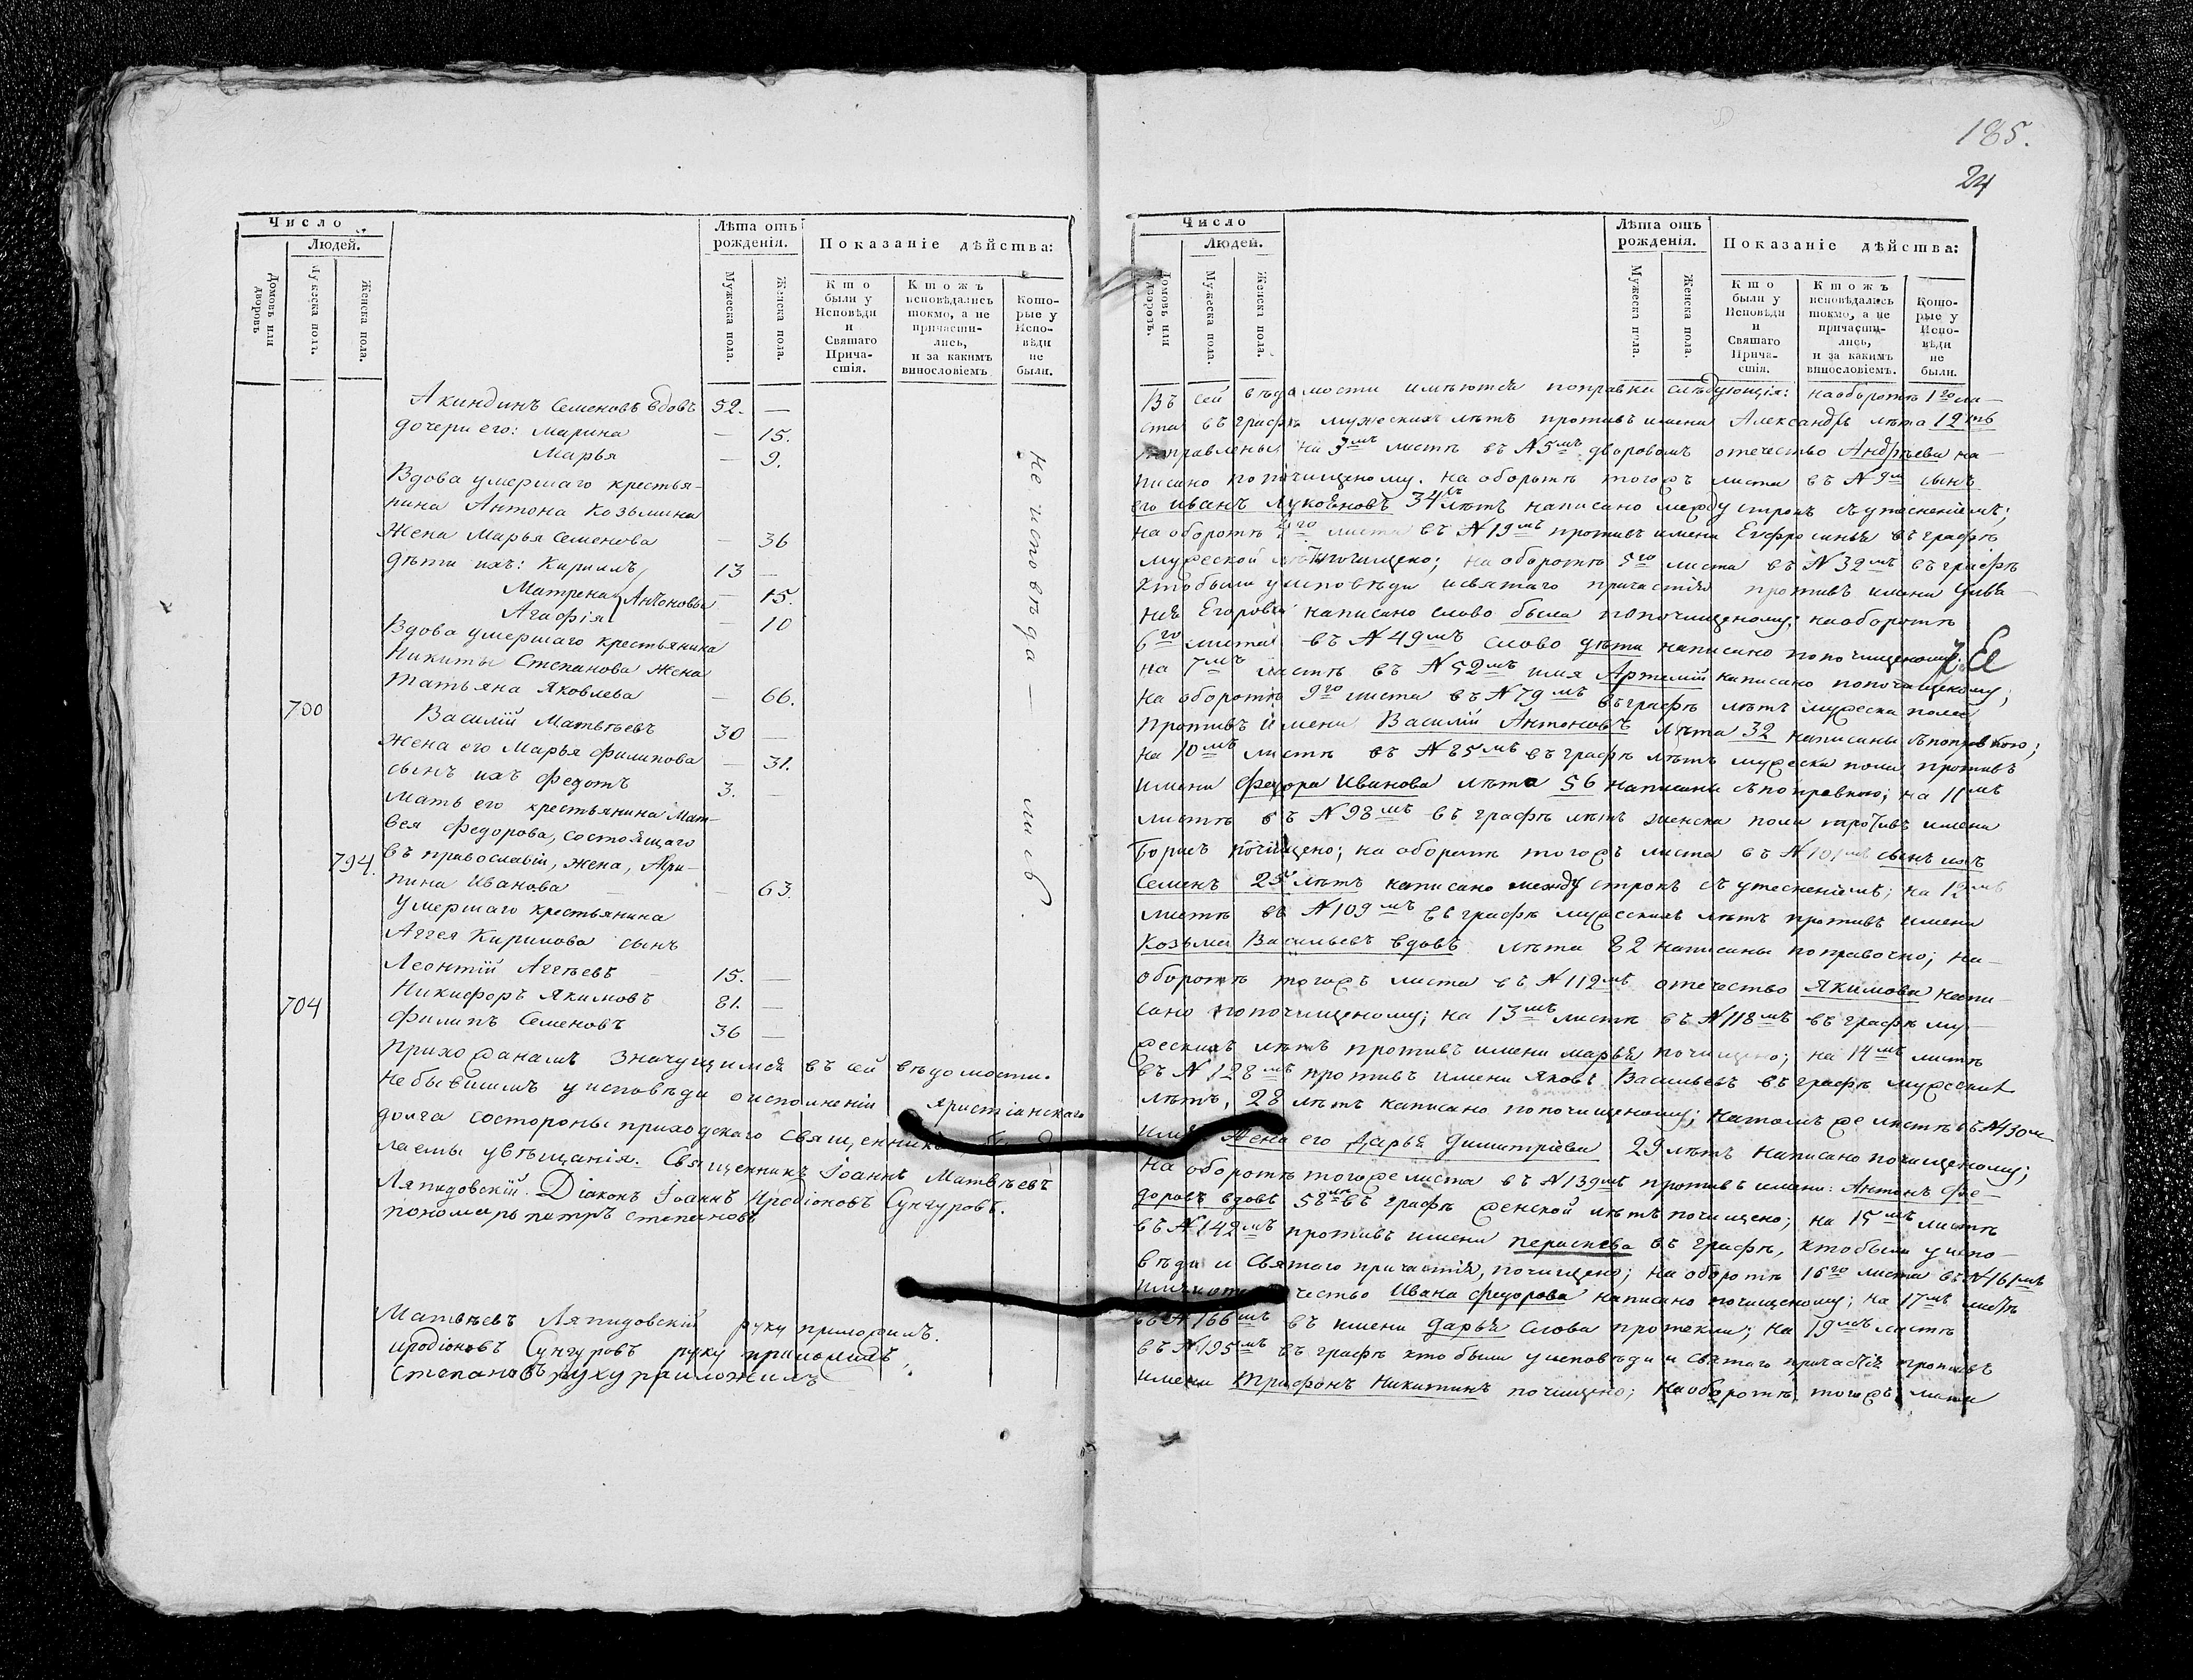 Число
Людей.
Домовъ или дворовъ
Мужеска полъ.
Женска пола.
Лѣта отъ рожденія.
Мужеска пола.
Женска пола.
Показаніе дѣйства:
Кто были у Исповѣди и Святаго Причастія.
Ктожъ исповѣдались токмо, а не причастились, и за какимъ винословіемъ
Которые у Исповѣди не были.
Акиндинъ Семеновъ вдовъ 52. —
дочери его: Марина — 15.
Марья — 9.
Вдова умершаго крестья-
нина Антона Козьмина
Жена Марья Семенова — 36
дѣти ихъ: Кириллъ 13 —
Матрена Антоновы — 15.
Агафія — 10
Вдова умершаго крестьянина
Никиты Степанова жена
Татьяна Яковлева — 66.
700 Василій Матвѣевъ 30 —
Жена его Марья Филипова — 31.
сынъ ихъ Федотъ 3. —
Мать его крестьянина Мат-
вея Федорова, состоящаго
794. въ православіи, жена, Агри-
пина Иванова — 63.
Умершаго крестьянина
Аггея Кирилова сынъ
Леонтій Аггѣевъ 15. —
Никифоръ Якимовъ 81. —
704 Филипъ Семеновъ 36 —
не исповѣда — лись.
Прихожанамъ значущимся въ сей вѣдомости.
небывшимъ у исповѣди о исполненіи христіанскаго
долга состороны приходскаго священника
лаемы увѣщанія. Священникъ Іоаннъ Матвѣевъ
Ляпидовскій. Діаконъ Іоаннъ Иродіоновъ Сунгуровъ.
пономарь петръ степановъ
Матвѣевъ Ляпидовскій руку приложилъ.
Иродіоновъ Сунгуровъ руку приложилъ,
Степановъ руку приложилъ
185.
24
Число
Людей.
Домовъ или дворовъ.
Мужеска пола.
Женска пола.
Лѣта отъ рожденія.
Мужеска пола.
Женска пола.
Показаніе дѣйства:
Кто были у Исповѣди и Святаго Причастія.
Ктожъ исповѣдались токмо, а не причастились, и за какимъ винословіемъ.
Которые у Исповѣди не были.
Въ сей вѣдомости имѣются поправки слѣдующія: на оборотѣ 1го ли-
ста въ графѣ мужескихъ лѣтъ противъ имени Александръ лѣта 12ть
поправлены; на 3мъ листѣ въ N 5мъ дворовомъ отечество Андрѣева на-
писано попочищеному. на оборотѣ тогожъ листа въ N 9м сынъ
его Иванъ Лукояновъ 34 лѣтъ написано между строкъ съ утѣсненіемъ;
на оборотѣ листа въ N 19мъ противъ имени Евфросинья въ графѣ
мужеской лѣтъ почищено; на оборотѣ 5го листа въ N 32мъ въ графѣ
кто были у исповѣди и святаго причастія противъ имени
Егоровы написано слово была попочищеному; на оборотѣ
6го листа въ N 49мъ слово дѣти написано попочищеному.
на 7мъ листѣ въ N 52мъ имя Артемій написано попочищеному;
на оборотѣ 9го листа въ N 79мъ въ графѣ лѣтъ мужеска пола
противъ имени Василій Антоновъ лѣта 32 написаны съ поправкою;
на 10мъ листѣ въ N 85мъ въ графѣ лѣтъ мужеска пола противъ
имени Федора Иванова лѣта 56 написаны съ поправкою; на 11мъ
листѣ въ N 98мъ въ графѣ лѣтъ женска пола противъ имени
Борисъ почищено; на оборотѣ тогожъ листа въ N 101мъ сынъ ихъ
Семенъ 25 лѣтъ написано между строкъ съ утесненіемъ; на 12мъ
листѣ въ N 109мъ въ графѣ мужескихъ лѣтъ противъ имени
Козьма Васильевъ вдовъ лѣта 82 написаны поправочно; на
оборотѣ тогожъ листа въ N 112мъ отечество Якимова напи-
сано попочищеному; на 13мъ листѣ въ N 118мъ въ графѣ му-
жескихъ лѣтъ противъ имени Марья почищено; на 14мъ листѣ
въ N 128мъ противъ имени Яковъ Васильевъ въ графѣ мужескихъ
лѣтъ, 28 лѣтъ написано попочищеному; натомъ же листѣ въ N 130м
жена его Дарья Димитріева 29 лѣтъ написано почищеному;
на оборотѣ тогоже листа въ N 139мъ противъ имени: Антонъ Фе-
доровъ вдовъ 58 въ графѣ женской лѣтъ почищено; на 15мъ листѣ
въ N 142мъ противъ имени въ графѣ, кто были у испо-
вѣди и Святаго причастія, почищено; на оборотѣ 16го листа въ N 161мъ
Ивана Федорова написано почищеному; на 17мъ листѣ
въ N 166мъ въ имени Дарья слова протекли; на 19мъ листѣ
въ N 195мъ въ графѣ кто были у исповѣди и святаго причастія противъ
имени Трифонъ Никитинъ почищено; на оборотѣ тогожъ листа